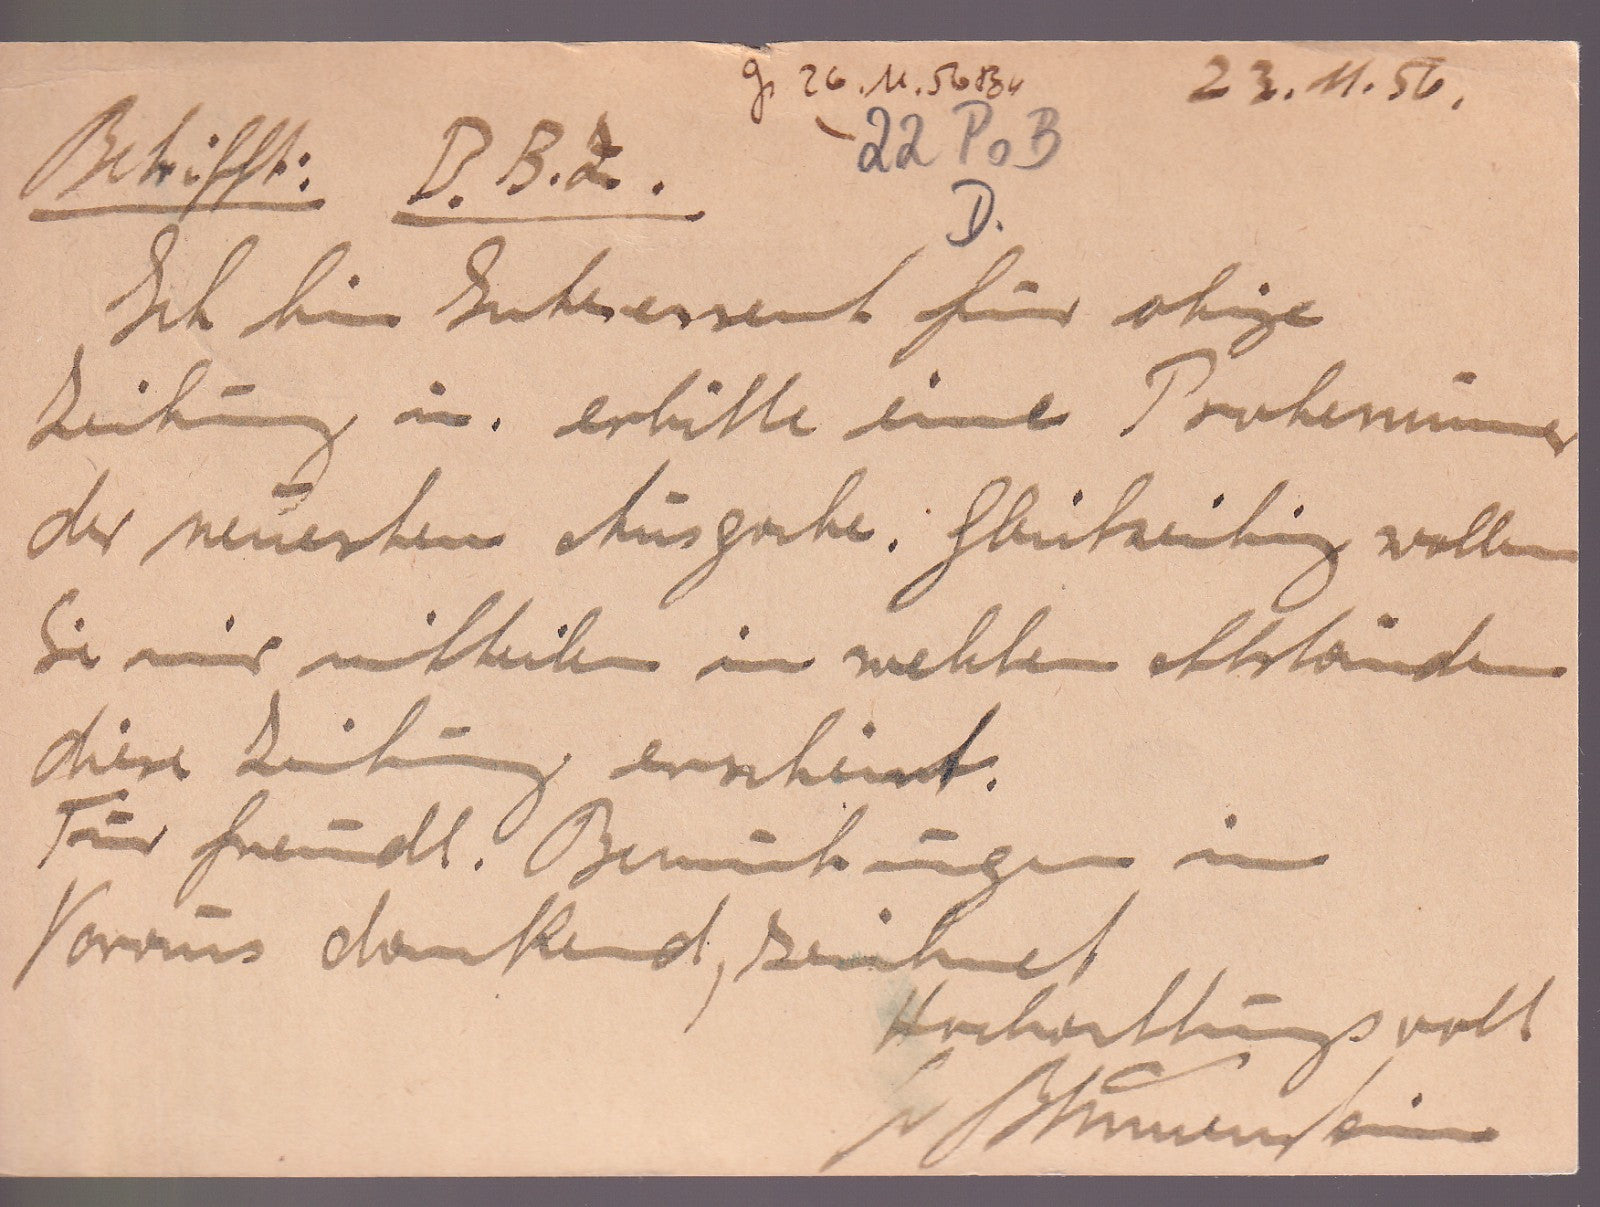 26.11.56
23.11.56.
22 PoB
D.
Betrifft: D.B.Z.
Ich bin Interessent für obige
Zeitung u. erbitte eine Probenummer
der neuesten Ausgabe. Gleichzeitig wollen
Sie mir mitteilen in welchen Abständen
diese Zeitung erscheint.
Für freundl. Bemühungen im
Voraus dankend, zeichnet
Hochachtungsvoll
Blumenstein